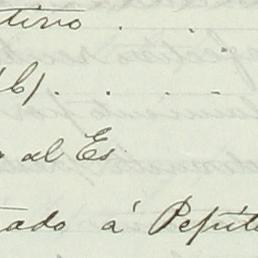 tivo . . .
b) . . . .
o al Es
tado á Pepit